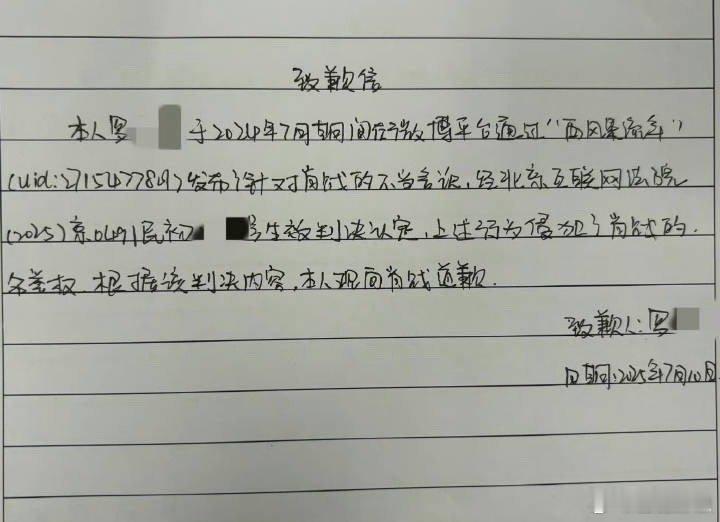 致歉信
本人罗 于2024年7月期间在微博平台通过“西风渠流年”
(uid:2715477849)发布了针对肖战的不当言论,经北京互联网法院
(2025)京0491民初 号生效判决认定,上述行为侵犯了肖战的
名誉权.根据该判决内容,本人现向肖战道歉.
致歉人:罗
日期:2025年7月10日